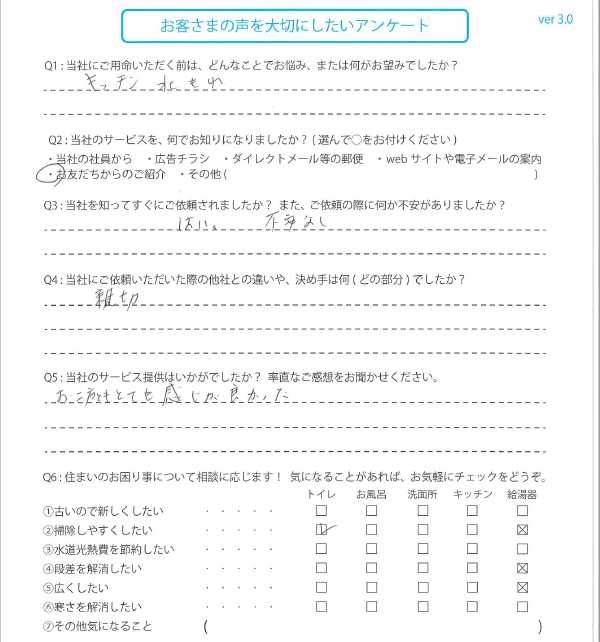 お客さまの声を大切にしたいアンケート
ver 3.0
Q1 : 当社にご用命いただく前は、どんなことでお悩み、または何がお望みでしたか？
キッチン 水もれ
Q2 : 当社のサービスを、何でお知りになりましたか？( 選んで〇をお付けください )
・当社の社員から ・広告チラシ ・ダイレクトメール等の郵便 ・web サイトや電子メールの案内
・お友だちからのご紹介 ・その他 ( )
Q3 : 当社を知ってすぐにご依頼されましたか？ また、ご依頼の際に何か不安がありましたか？
はい。 不安なし
Q4 : 当社にご依頼いただいた際の他社との違いや、決め手は何 ( どの部分 ) でしたか？
親切
Q5 : 当社のサービス提供はいかがでしたか？ 率直なご感想をお聞かせください。
とても感じが良かった
Q6 : 住まいのお困り事について相談に応じます！ 気になることがあれば、お気軽にチェックをどうぞ。
トイレ お風呂 洗面所 キッチン 給湯器
①古いので新しくしたい ・・・・・ □ □ □ □ □
②掃除しやすくしたい ・・・・・ ☑ □ □ □ ☒
③水道光熱費を節約したい ・・・・・ □ □ □ □ □
④段差を解消したい ・・・・・ □ □ □ □ ☒
⑤広くしたい ・・・・・ □ □ □ □ ☒
⑥寒さを解消したい ・・・・・ □ □ □ □ □
⑦その他気になること ( )